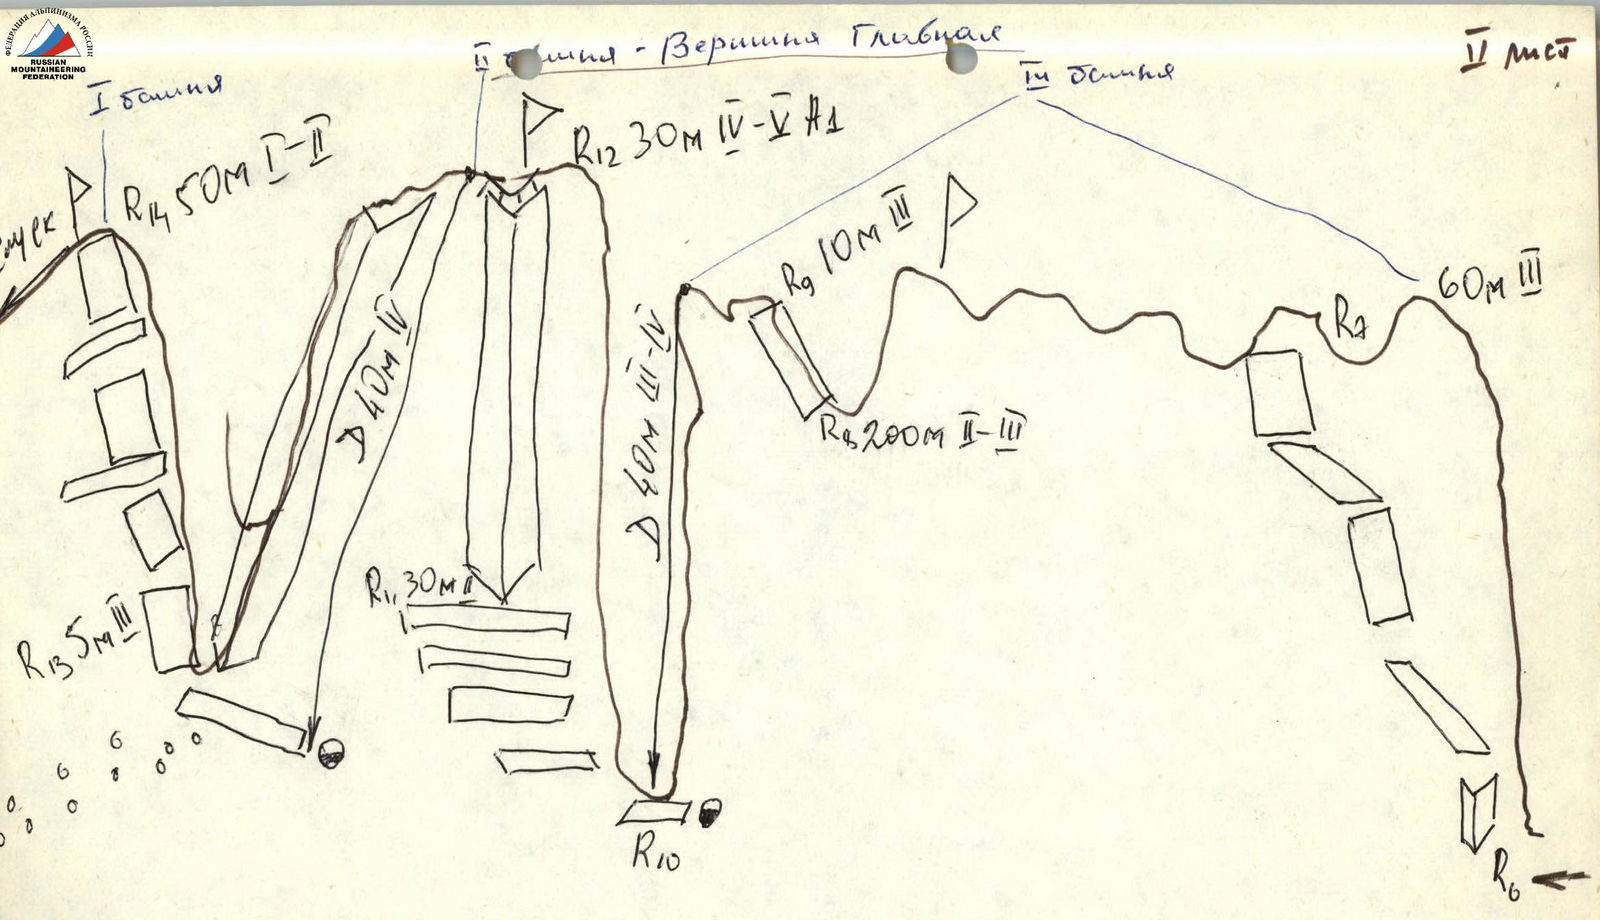 ФЕДЕРАЦИЯ АЛЬПИНИЗМА РОССИИ
RUSSIAN
MOUNTAINEERING
FEDERATION
II башня - Вершина Главная
II лист
I башня
III башня
R12 30м IV-V A1
R14 50м I-II
Спуск
R9 10м III
60м III
R7
D 40м IV
D 40м III-IV
R8 200м II-III
R11 30м II
R13 5м III
R10
R6